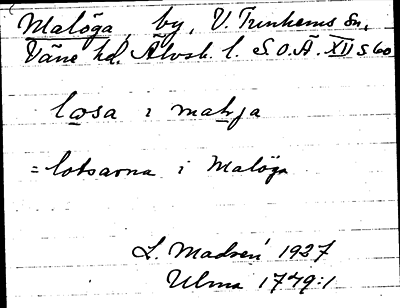 Malöga, by, V. Tunhems sn,
Väne hd. Älvsb. l. S.O.Ä. XII s 60
læsa i
= lotsarna i Malöga
L. Madsén 1927
Ulma 1779:1